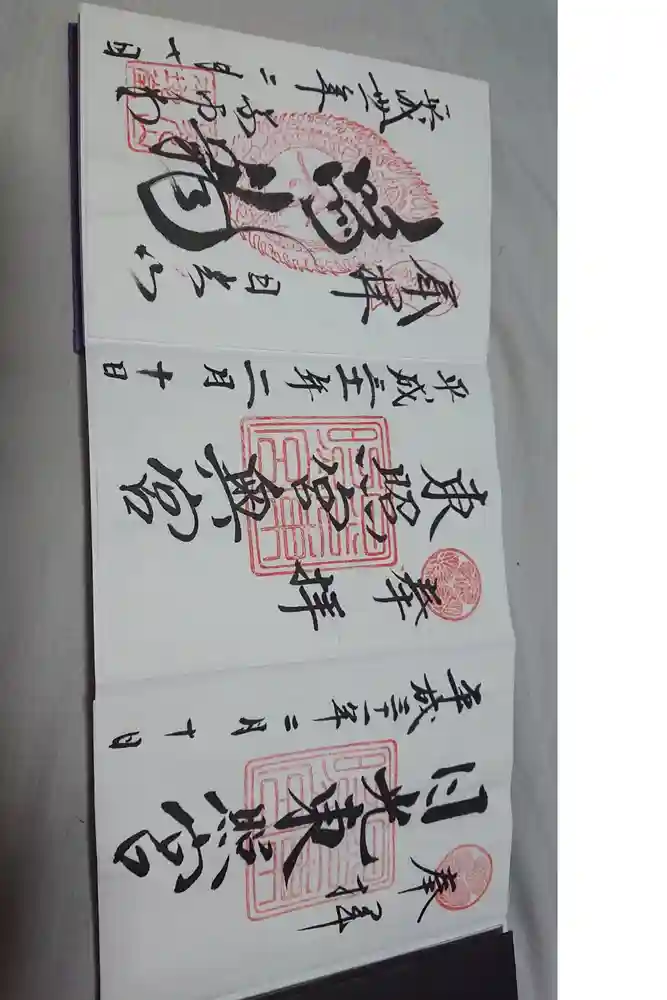 奉拝
日光東照宮
平成三十一年二月十日
奉拝
東照宮奥宮
平成三十一年二月十日
奉拝
日光山
鳴龍
平成卅一年二月十日